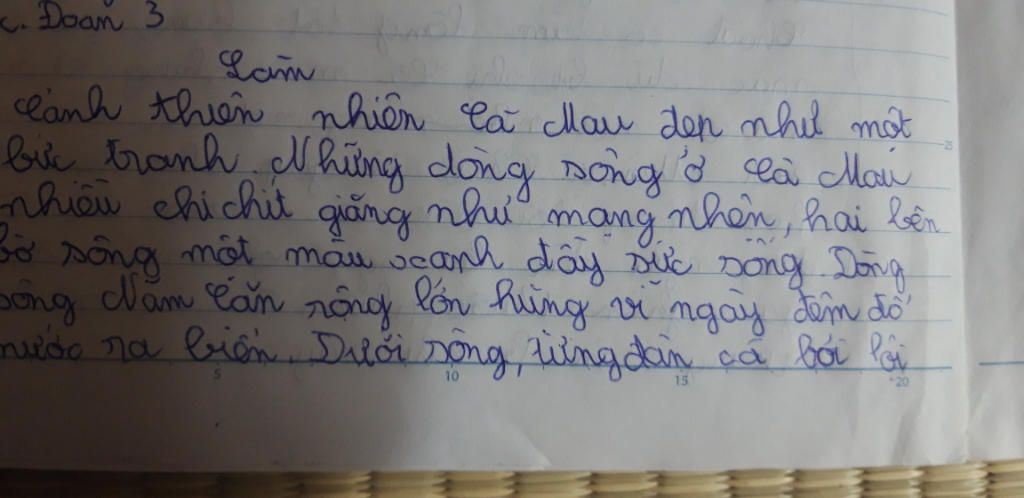 c. Đoạn 3
Làm
Cảnh thiên nhiên Cà Mau đẹp như một
bức tranh. Những dòng sông ở Cà Mau
nhiều chi chít giăng như mạng nhện, hai bên
bờ sông một màu xanh đầy sức sống. Dòng
sông Năm Căn rộng lớn hùng vĩ ngày đêm đổ
nước ra biển. Dưới sông, từng đàn cá bơi lội
5 10 15 20
25